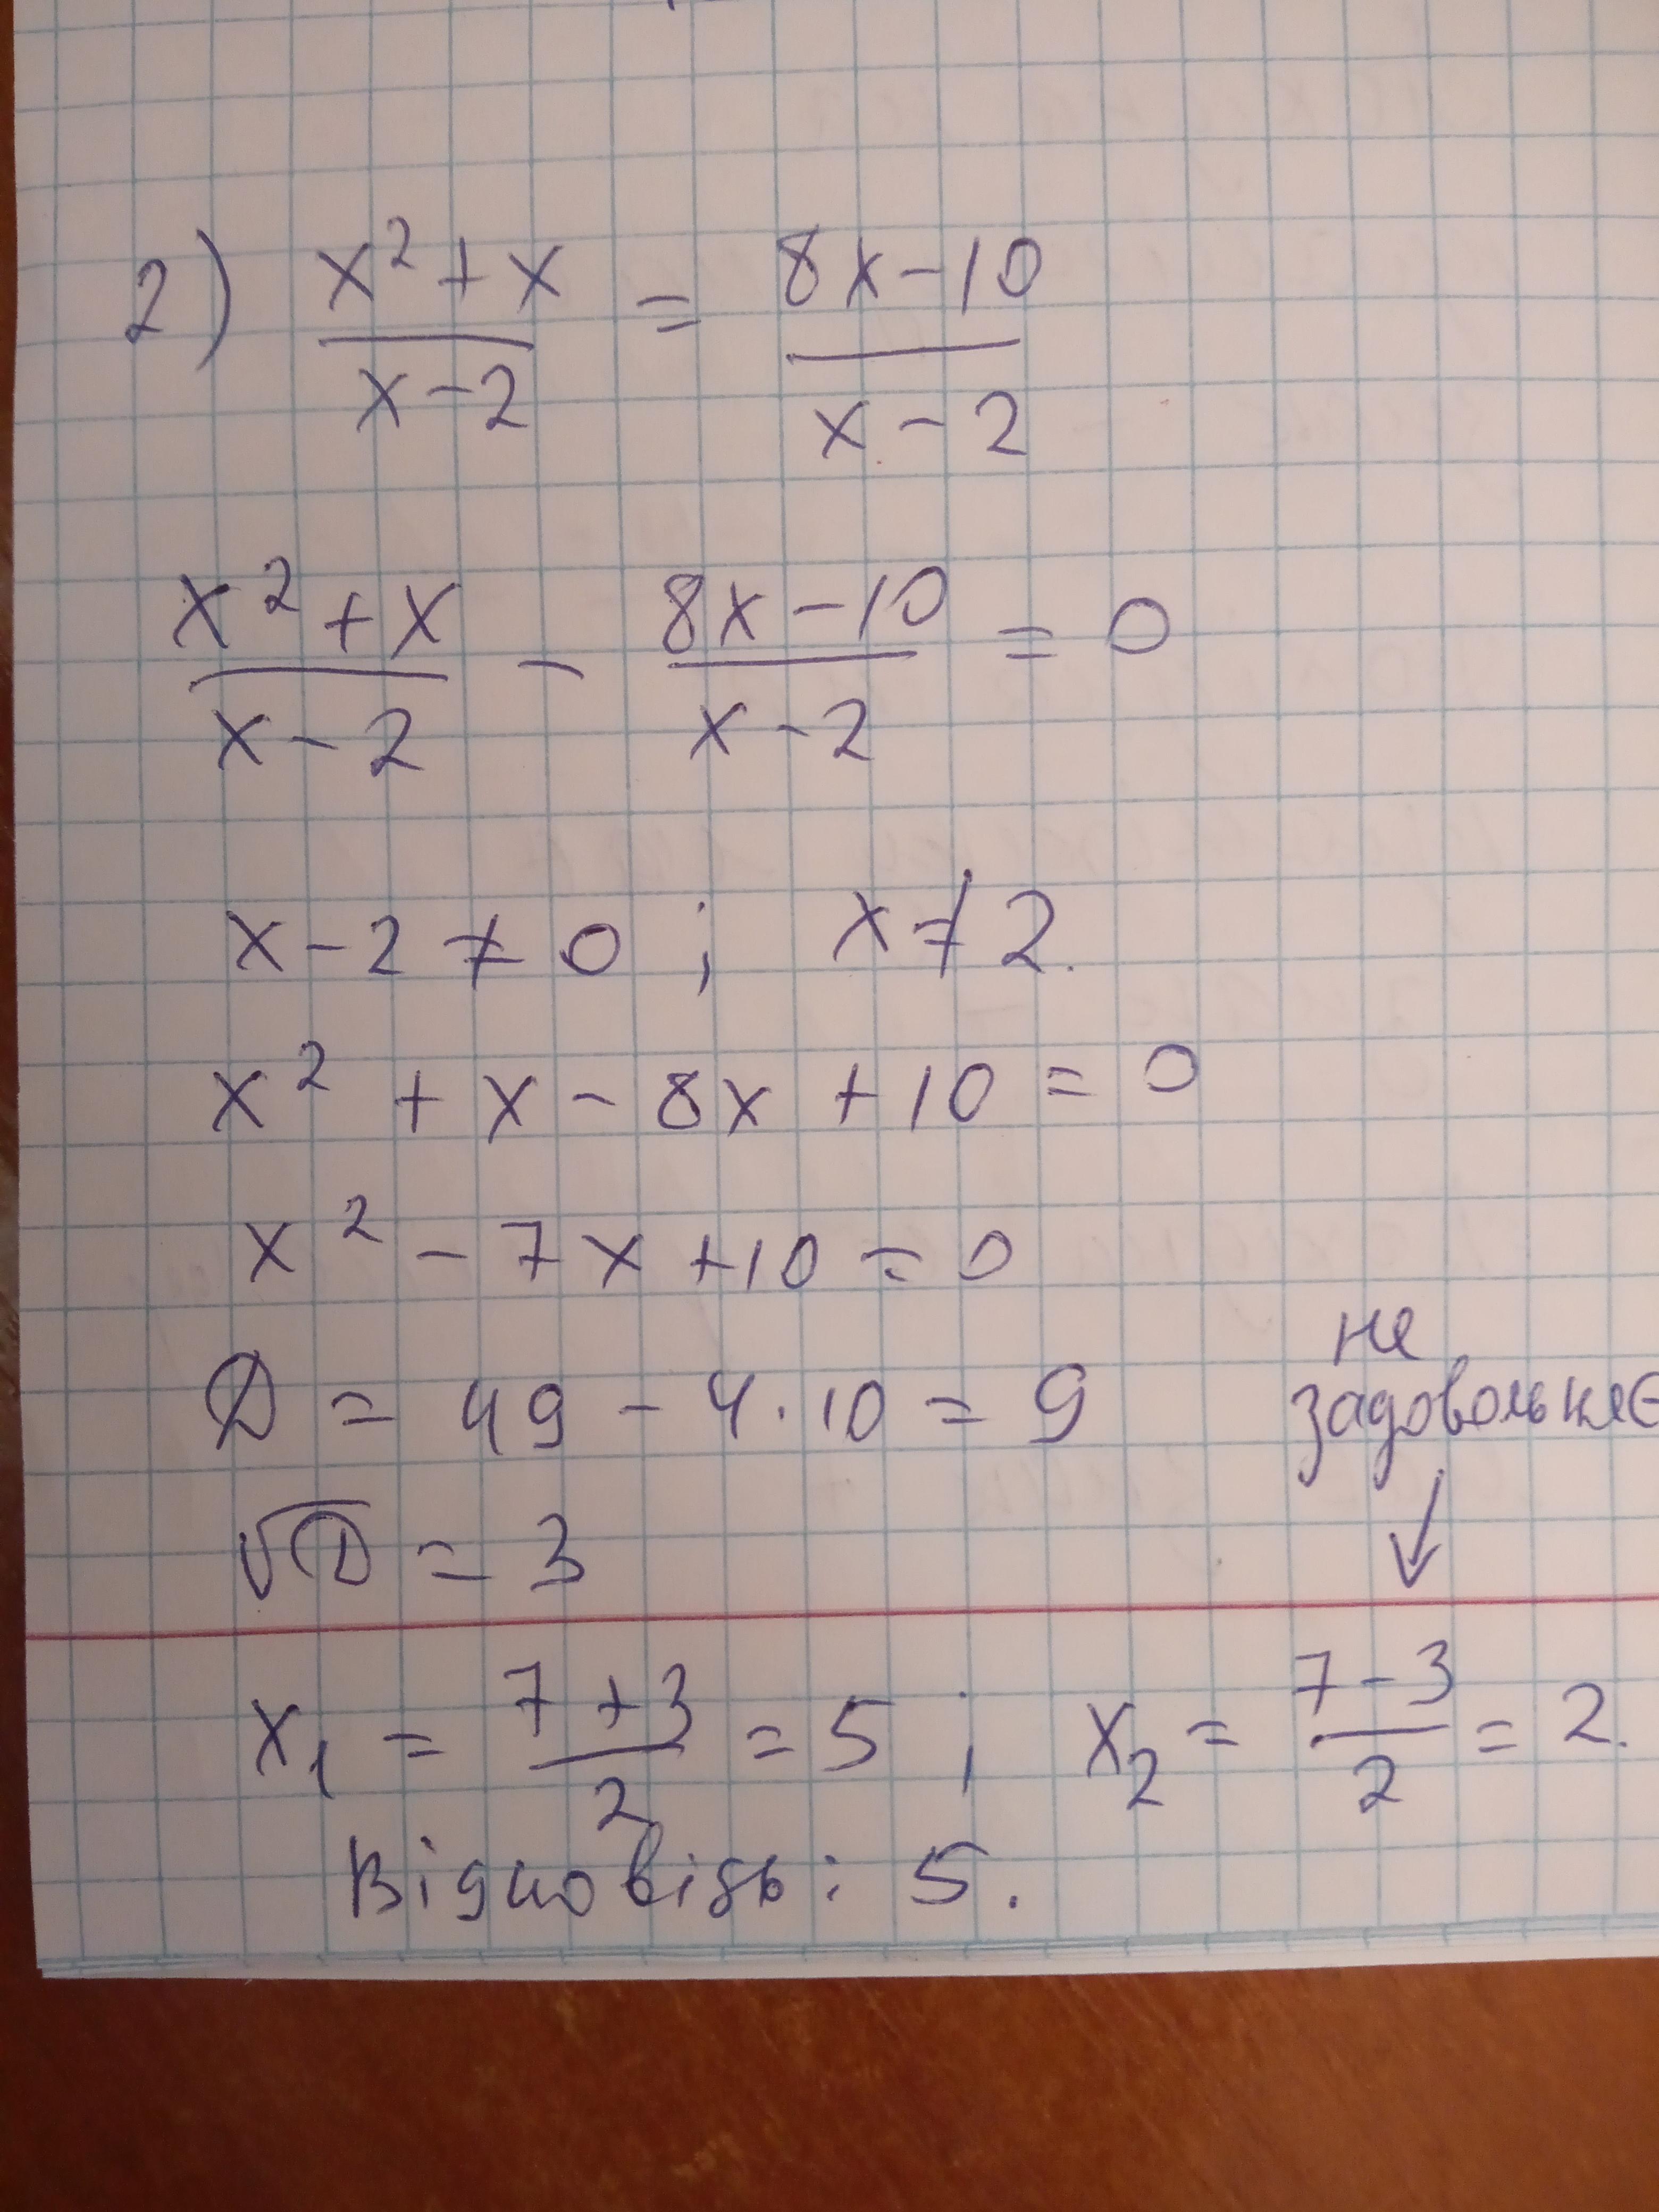 2) x² + x / x - 2 = 8x - 10 / x - 2
x² + x / x - 2 - 8x - 10 / x - 2 = 0
x - 2 ≠ 0 ; x ≠ 2.
x² + x - 8x + 10 = 0
x² - 7x + 10 = 0
D = 49 - 4 · 10 = 9
не
задовольняє
√D = 3
↓
x₁ = 7 + 3 / 2 = 5 ; x₂ = 7 - 3 / 2 = 2.
Відповідь: 5.